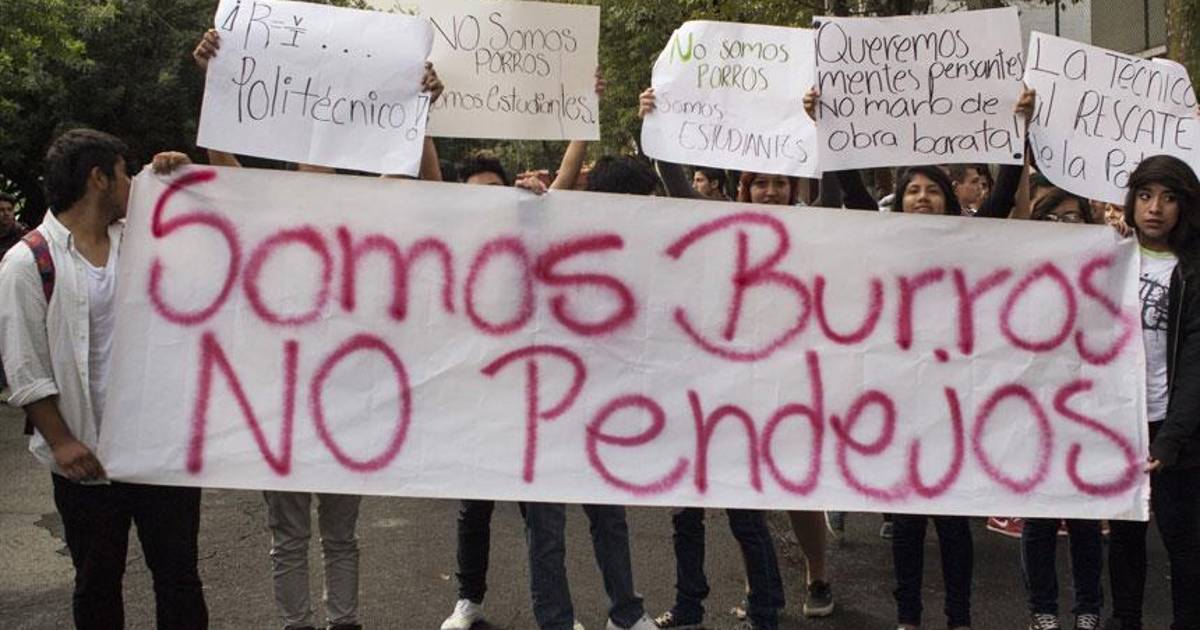 ¡R=V/I....
Politécnico!
NO Somos
PORROS
Somos Estudiantes.
No somos
PORROS
Somos
ESTUDIANTES
¡Queremos
mentes pensantes
No mano de
obra barata!
La Técnica
al RESCATE
de la
Somos Burros
NO Pendejos